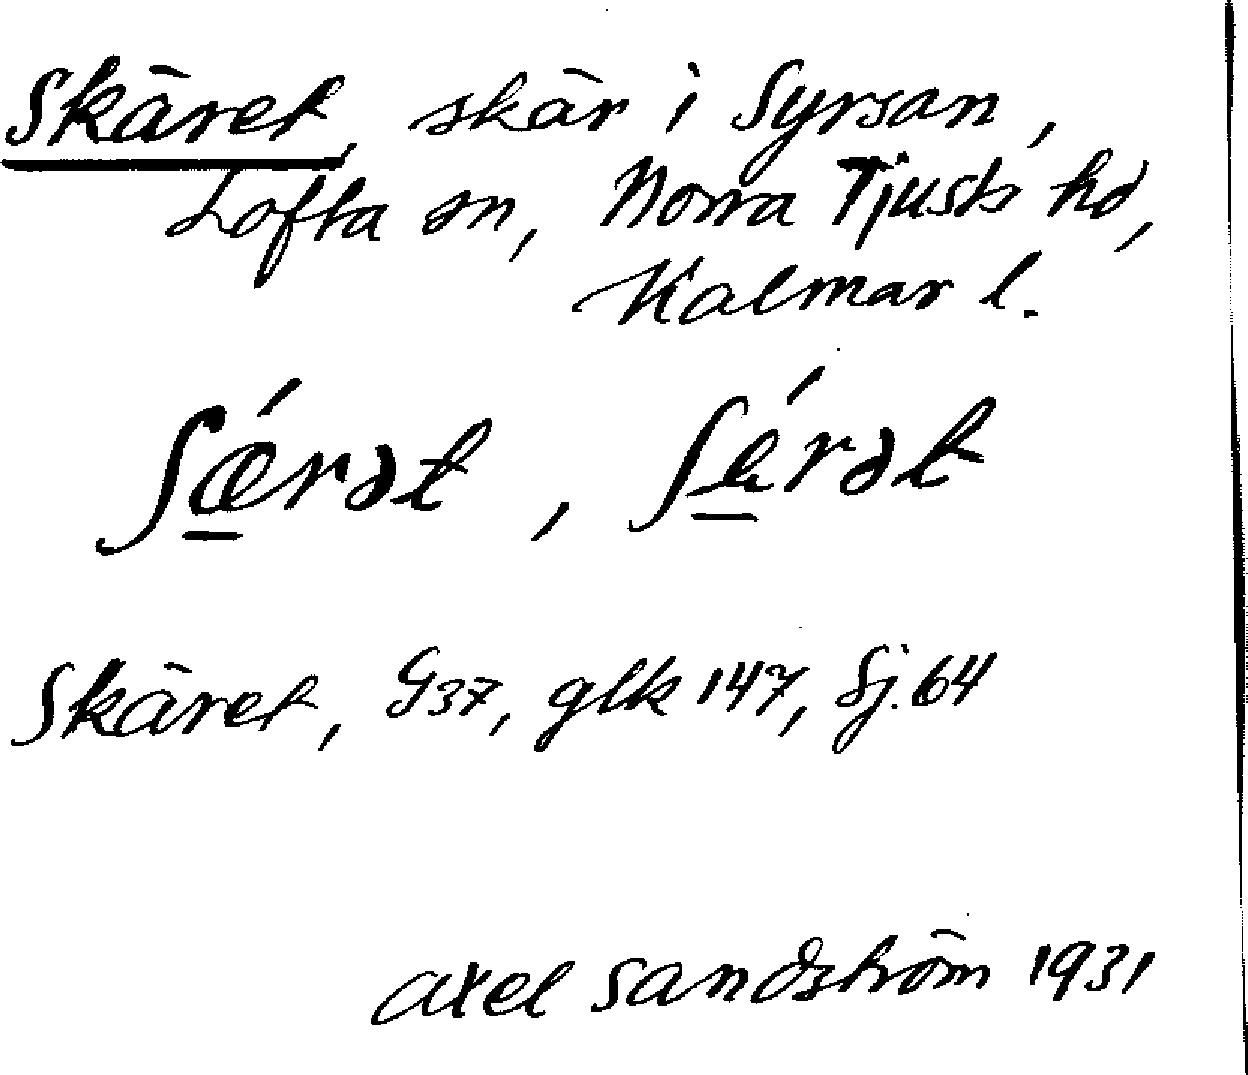 Skäret, skär i Syrsan,
Lofta sn, Norra Tjusts hd,
Kalmar l.
ʃǽ̠rət, ʃä̠́rət
Skäret, G37, glk 147, Sj. 64
Axel Sandström 1931